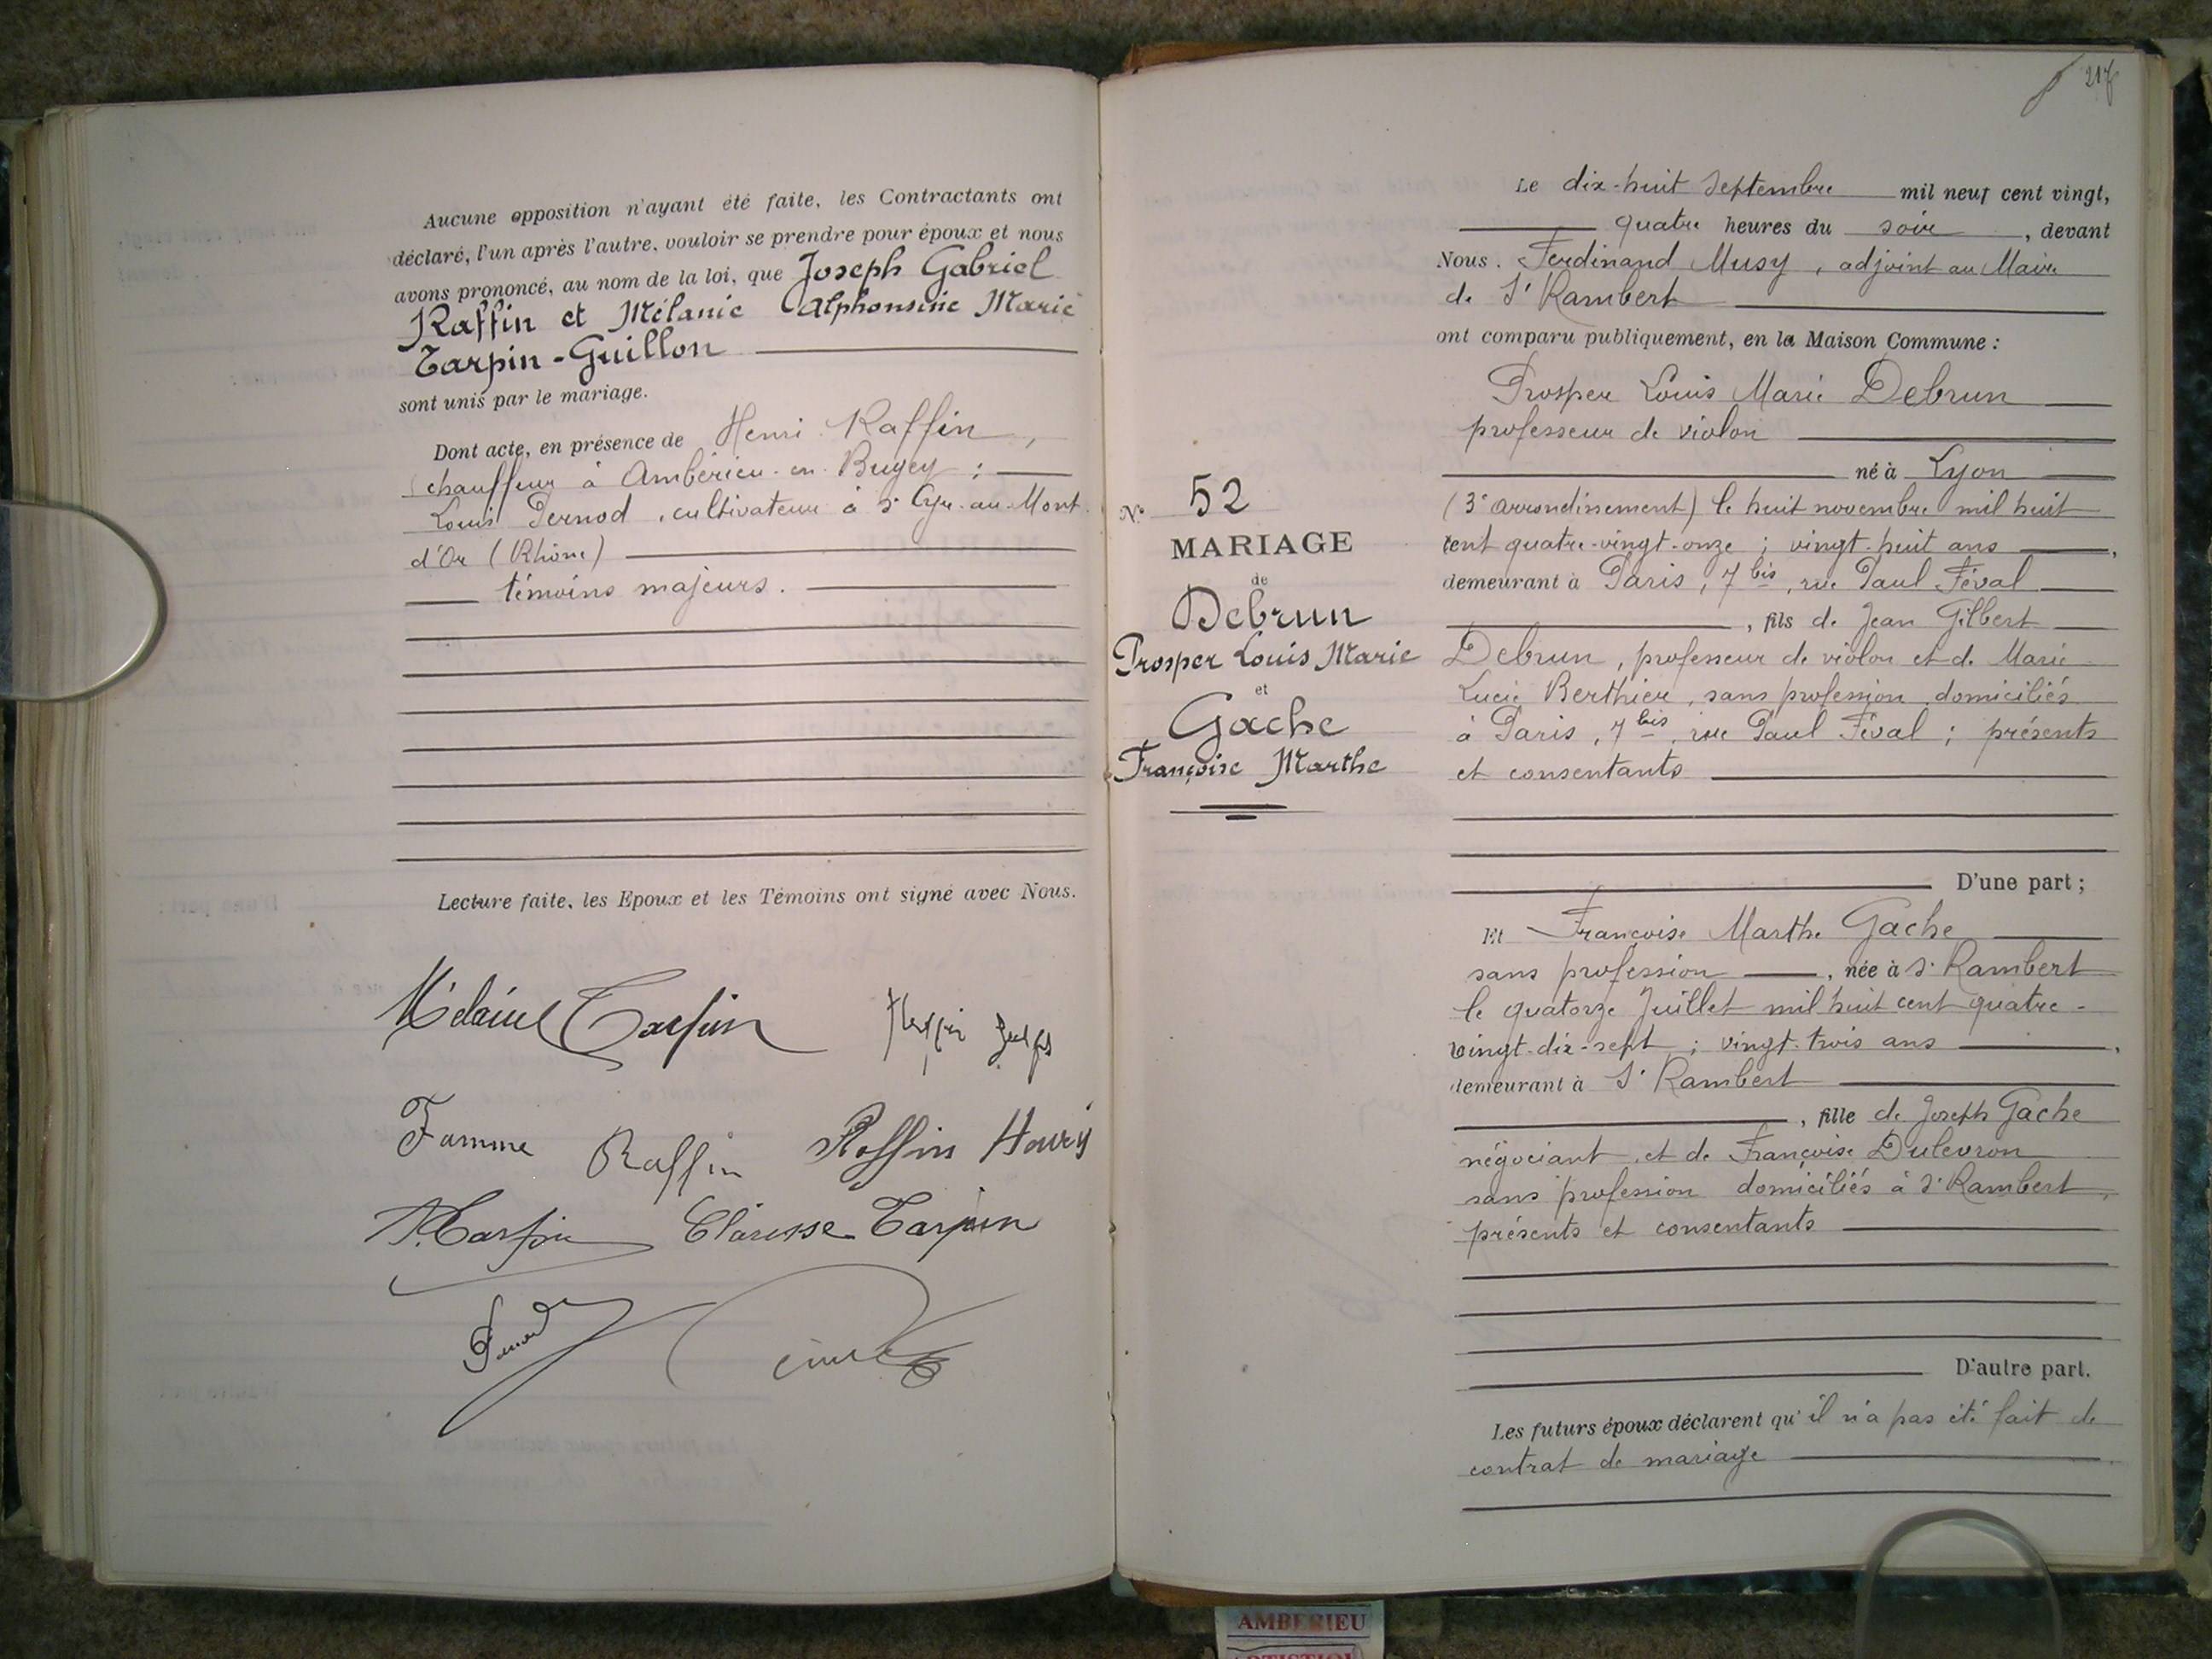 Aucune opposition n'ayant été faite, les Contractants ont
déclaré, l'un après l'autre, vouloir se prendre pour époux et nous
avons prononcé, au nom de la loi, que Joseph Gabriel
Raffin et Mélanie Alphonsine Marie
Tarpin-Guillon
sont unis par le mariage.
Dont acte, en présence de Henri Raffin,
chauffeur à Ambérieu-en-Bugey ;
Louis Pernod, cultivateur à St Cyr-au-Mont
d'Or (Rhône)
témoins majeurs.
Lecture faite, les Epoux et les Témoins ont signé avec Nous.
Mélanie Tarpin
Famme Raffin Raffin Henry
Tarpin Clarisse Tarpin
217
Le dix-huit Septembre mil neuf cent vingt,
quatre heures du soir, devant
Nous. Ferdinand Musy, adjoint au Maire
de St Rambert
ont comparu publiquement, en la Maison Commune :
Prosper Louis Marie Debrun
professeur de violon
né à Lyon
(3e arrondissement) le huit novembre mil huit
cent quatre-vingt-onze ; vingt-huit ans,
demeurant à Paris, 7 bis, rue Paul Féval
, fils de Jean Gilbert
Debrun, professeur de violon et de Marie
Lucie Berthier, sans profession domiciliés
à Paris, 7 bis, rue Paul Féval ; présents
et consentants
D'une part ;
N° 52
MARIAGE
de
Debrun
Prosper Louis Marie
et
Gache
Françoise Marthe
Et Françoise Marthe Gache
sans profession, née à St Rambert
le quatorze Juillet mil huit cent quatre-
vingt-dix-sept ; vingt-trois ans,
demeurant à St Rambert
, fille de Joseph Gache
négociant et de Françoise Dulevron
sans profession domiciliés à St Rambert,
présents et consentants
D'autre part.
Les futurs époux déclarent qu'il n'a pas été fait de
contrat de mariage
AMBERIEU